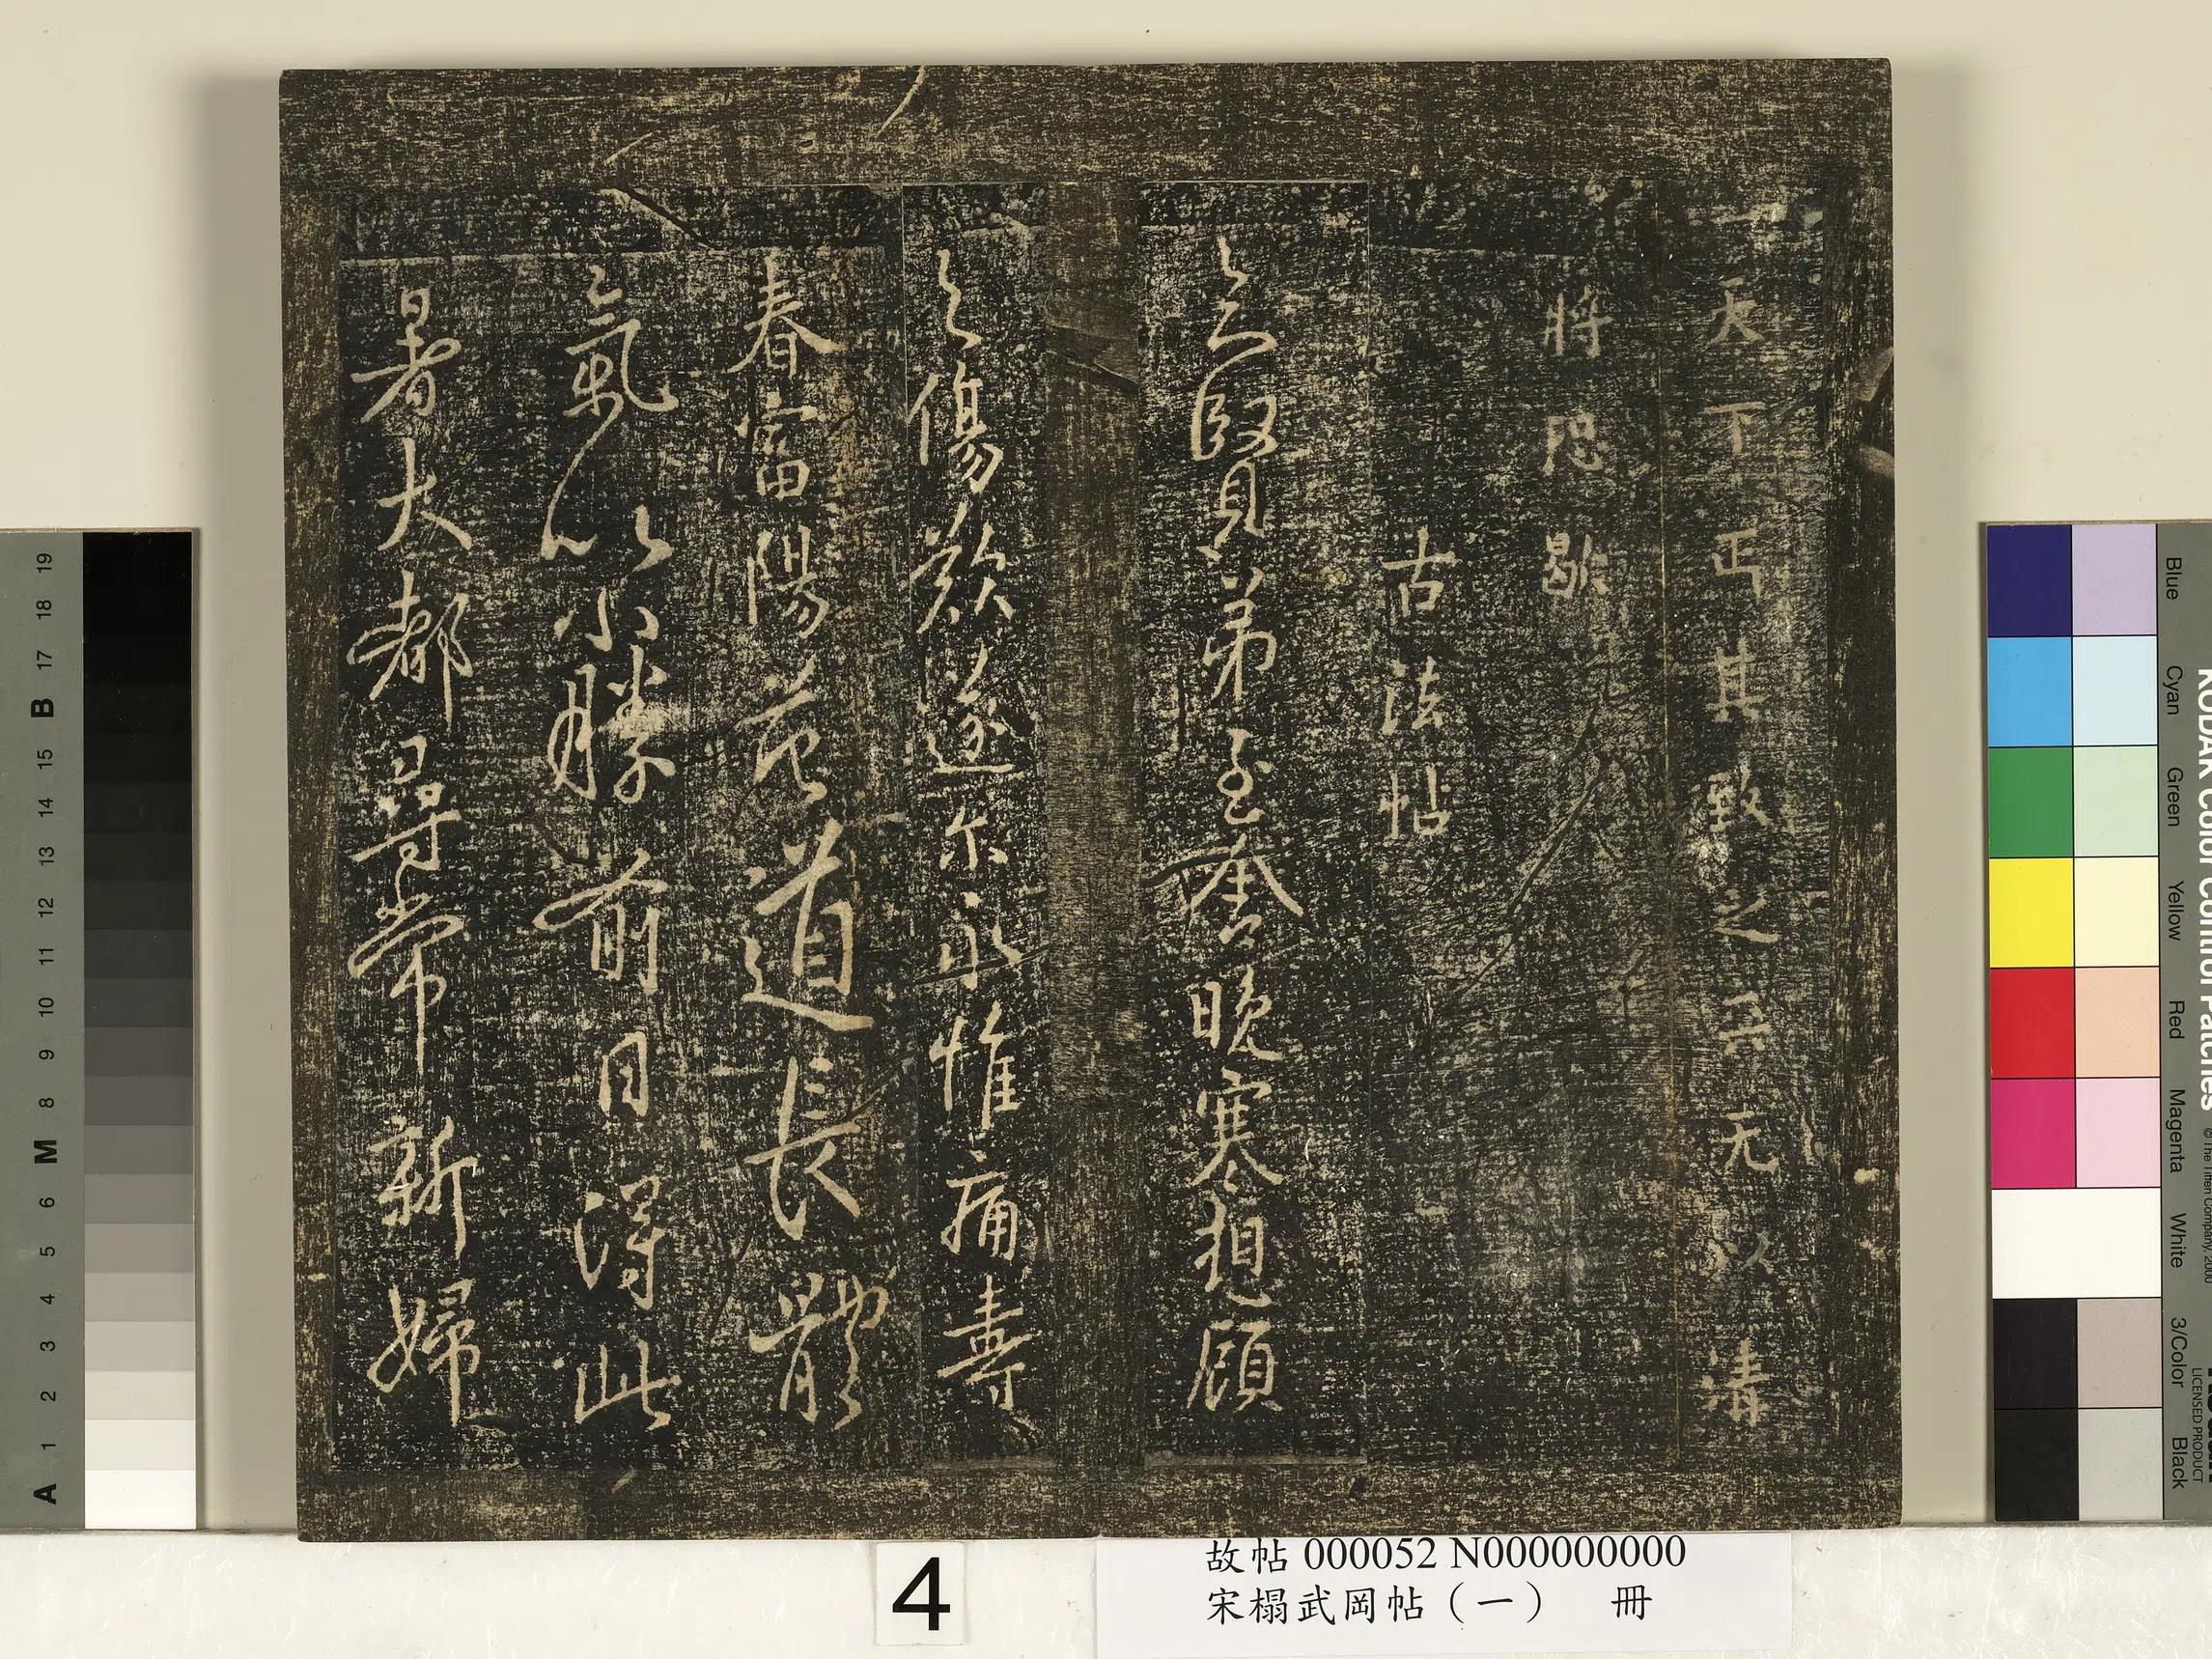 天下正其致之天无以清
將恐歇
古法帖
賢弟至晚寒想顧
之傷歎遂尔永惟痛壽
春富陽道長體
氣以小勝前日得此
暑大都尋常新婦
4
故帖 000052 N000000000
宋榻武岡帖（一） 冊
KODAK Color Control Patches
© The Tiffen Company, 2000
LICENSED PRODUCT
Blue
Cyan
Green
Yellow
Red
Magenta
White
3/Color
Black
A 1 2 3 4 5 6 M 8 9 10 11 12 13 14 15 B 17 18 19